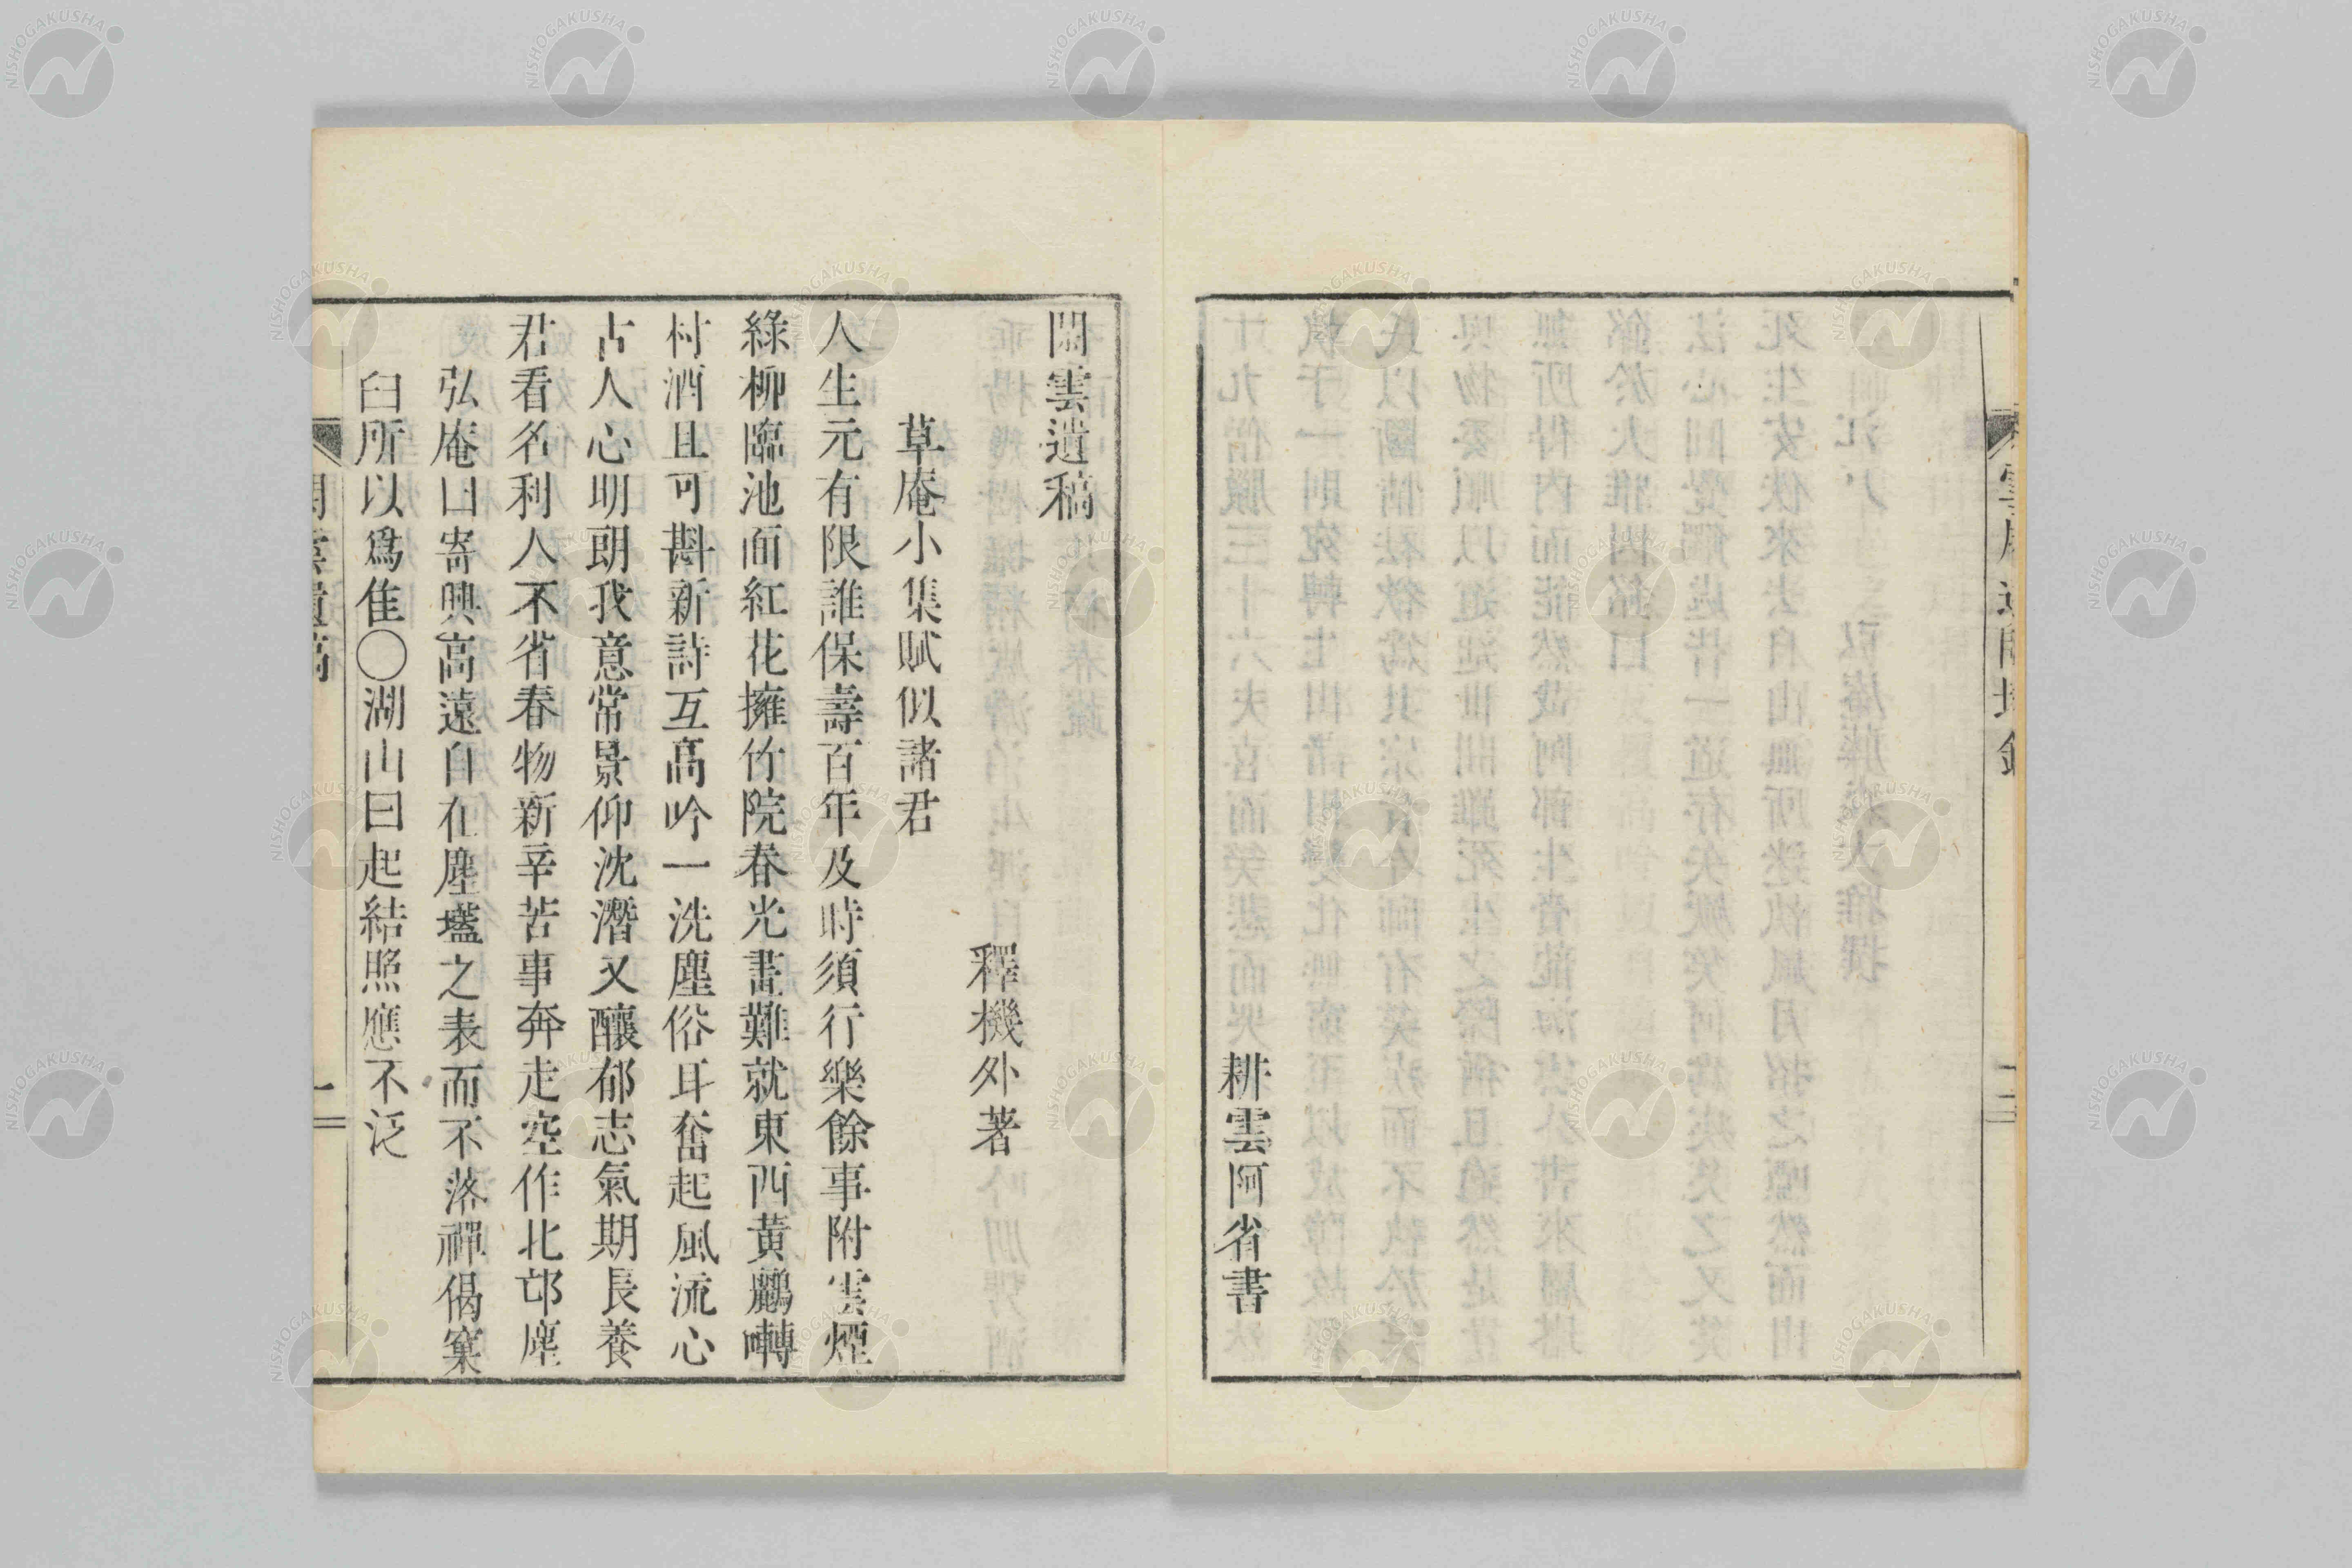 耕雲阿省書
閒雲遺稿
釋機外著
草庵小集賦似諸君
人生元有限誰保壽百年及時須行樂餘事附雲煙
綠柳臨池面紅花擁竹院春光畫難就東西黃鸝囀
村酒且可斟新詩互髙吟一洗塵俗耳奮起風流心
古人心明朗我意常景仰沈潛又釀郁志氣期長養
君看名利人不省春物新辛苦事奔走空作北邙塵
弘庵曰寄興高遠自在塵壒之表而不落禪偈窠
臼所以爲隹〇湖山曰起結照應不泛
閒雲遺稿
一
NISHOGAKUSHA